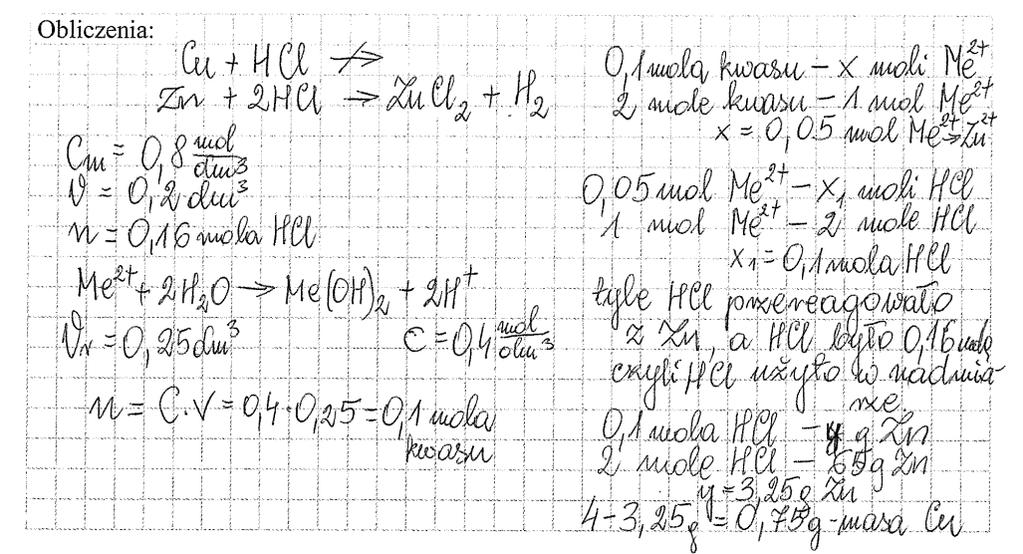 Obliczenia:
Cu + HCl ↛
Zn + 2HCl → ZnCl₂ + H₂
Cm = 0,8 mol/dm³
V = 0,2 dm³
n = 0,16 mola HCl
Me²⁺ + 2H₂O → Me(OH)₂ + 2H⁺
Vr = 0,25 dm³ c = 0,4 mol/dm³
n = C·V = 0,4·0,25 = 0,1 mola
kwasu
0,1 mola kwasu – x moli Me²⁺
2 mole kwasu – 1 mol Me²⁺
x = 0,05 mol Me²⁺ ⇒ Zn²⁺
0,05 mol Me²⁺ – x₁ moli HCl
1 mol Me²⁺ – 2 mole HCl
x₁ = 0,1 mola HCl
tyle HCl przereagowało
z Zn, a HCl było 0,16 mola
czyli HCl użyto w nadmia-
rze
0,1 mola HCl – y g Zn
2 mole HCl – 65 g Zn
y = 3,25 g Zn
4 – 3,25 g = 0,75 g - masa Cu